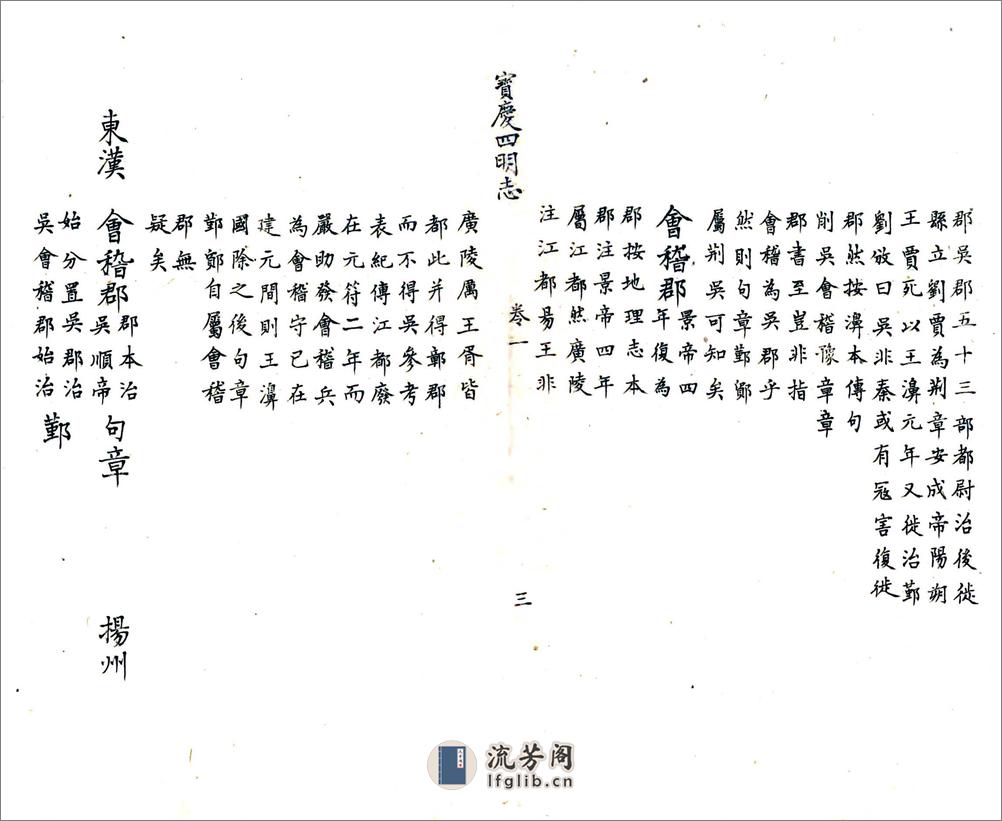 郡吳郡五十三部都尉治後徙
縣立劉賈為荆章安成帝陽朔
王賈死以王濞元年又徙治鄞
劉攽曰吳非秦或有冦害復徙
郡然按濞本傳句
削吳會稽豫章章
郡書至豈非指
會稽為吳郡乎
然則句章鄞鄮
屬荆吳可知矣
會稽郡景帝四
年復為
郡按地理志本
郡注景帝四年
屬江都然廣陵
注江都易王非
寳慶四明志 卷一 三
廣陵厲王胥皆
都此并得鄣郡
而不得吳參考
表紀傳江都廢
在元符二年而
嚴助發會稽兵
為會稽守已在
建元間則王濞
國除之後句章
鄞鄮自屬會稽
郡無
疑矣
東漢 會稽郡郡本治
吳順帝 句章 揚州
始分置吳郡治
吳會稽郡始治 鄞
流芳阁
lfglib.cn